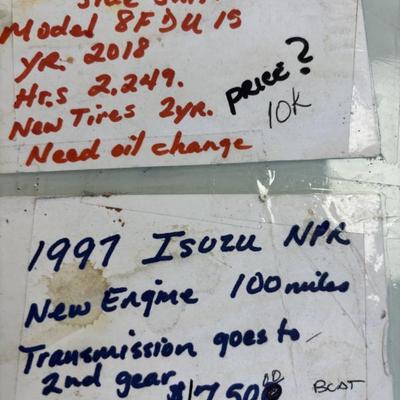 Model 8FDU15
YR. 2018
Hrs 2,249.
New Tires 2yr.
PRICE?
10K
Need oil change
1997 Isuzu NPR
New Engine 100 miles
Transmission goes to
2nd gear
$1750.00
BCAT